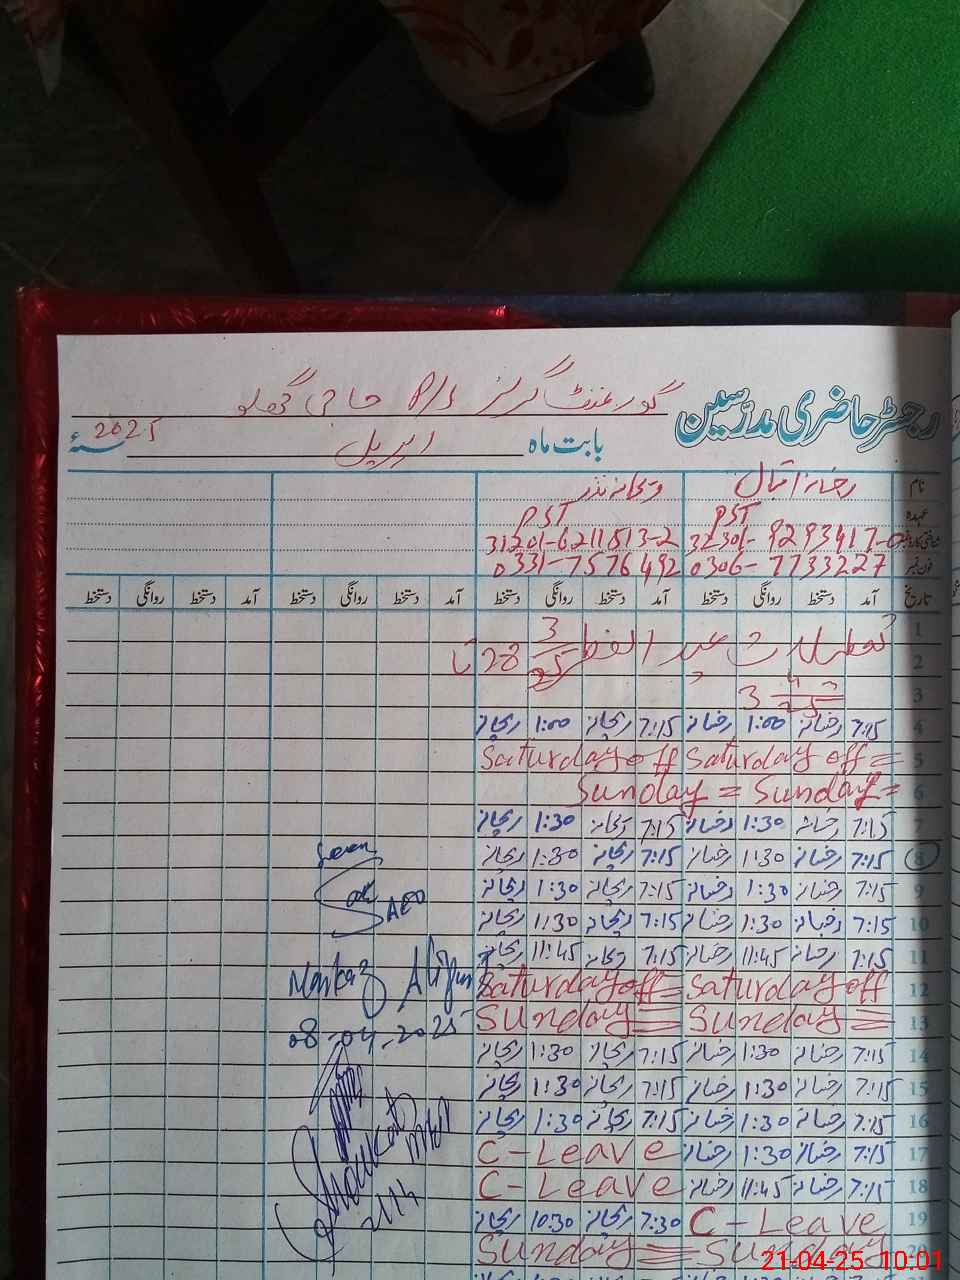 رجسٹر حاضری مدرسین گورنمنٹ گرلز P/S حاجی
بابت ماہ اپریل 2025 سنہ
نام رخسانہ اقبال ریحانہ نذر
عہدہ PST PST
شناختی کارڈ نمبر 32301-9293417-0 31201-6211513-2
فون نمبر 0306-7733227 0331-7576492
تاریخ آمد دستخط روانگی دستخط آمد دستخط روانگی دستخط آمد دستخط روانگی دستخط آمد دستخط روانگی دستخط
1 تعطیلات عید الفطر 28 3/25 تا
2
3 3 4/25
4 7:15 رخسانہ 1:00 رخسانہ 7:15 ریحانہ 1:00 ریحانہ
5 Saturday off Saturday off =
6 Sunday = Sunday =
7 7:15 رخسانہ 1:30 رخسانہ 7:15 ریحانہ 1:30 ریحانہ
8 7:15 رخسانہ 1:30 رخسانہ 7:15 ریحانہ 1:30 ریحانہ
9 7:15 رخسانہ 1:30 رخسانہ 7:15 ریحانہ 1:30 ریحانہ
10 7:15 رخسانہ 1:30 رخسانہ 7:15 ریحانہ 1:30 ریحانہ
11 7:15 رخسانہ 11:45 رخسانہ 7:15 ریحانہ 11:45 ریحانہ
12 Saturday off = Saturday off
13 Sunday = Sunday =
14 7:15 رخسانہ 1:30 رخسانہ 7:15 ریحانہ 1:30 ریحانہ
15 7:15 رخسانہ 1:30 رخسانہ 7:15 ریحانہ 1:30 ریحانہ
16 7:15 رخسانہ 1:30 رخسانہ 7:15 ریحانہ 1:30 ریحانہ
17 7:15 رخسانہ 1:30 رخسانہ C-Leave
18 7:15 رخسانہ 11:45 رخسانہ C-Leave
19 C-Leave 7:30 ریحانہ 10:30 ریحانہ
20 Sunday = Sunday
Seen
AEO
Markaz
08-04-2025
Shoukat
21/4
21-04-25 10:01